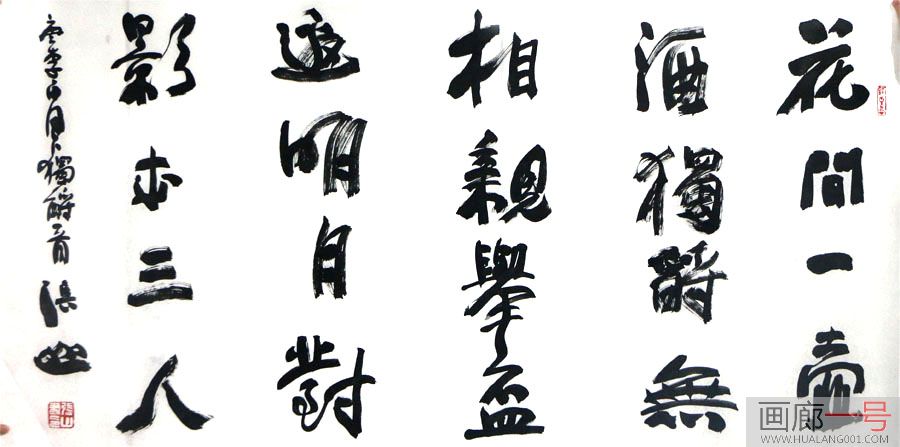 花間一壺
酒獨酌無
相親舉盃
邀明月對
影成三人
李白月下獨酌一首
画廊一号
WWW.HUALANG001.COM